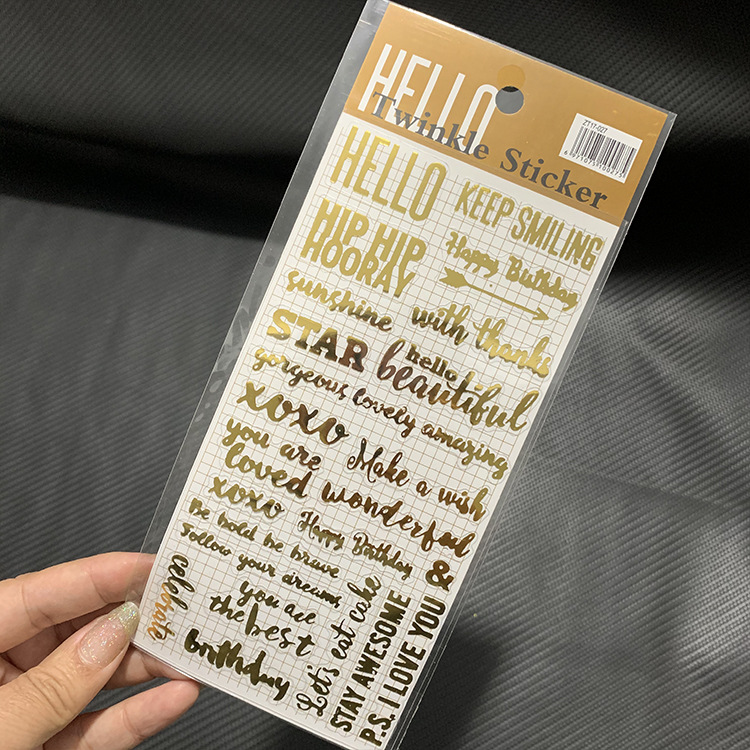 HELLO
Twinkle Sticker
ZT17-027
HELLO
KEEP SMILING
HIP HIP
HOORAY
Happy Birthday
sunshine
with thanks
STAR
hello
beautiful
gorgeous
lovely
amazing
xoxo
Make a wish
you are
loved
wonderful
xoxo
Happy Birthday
&
Be bold be brave
follow your dreams
celebrate
you are
the best
birthday
Let's eat cake
STAY AWESOME
P.S. I LOVE YOU